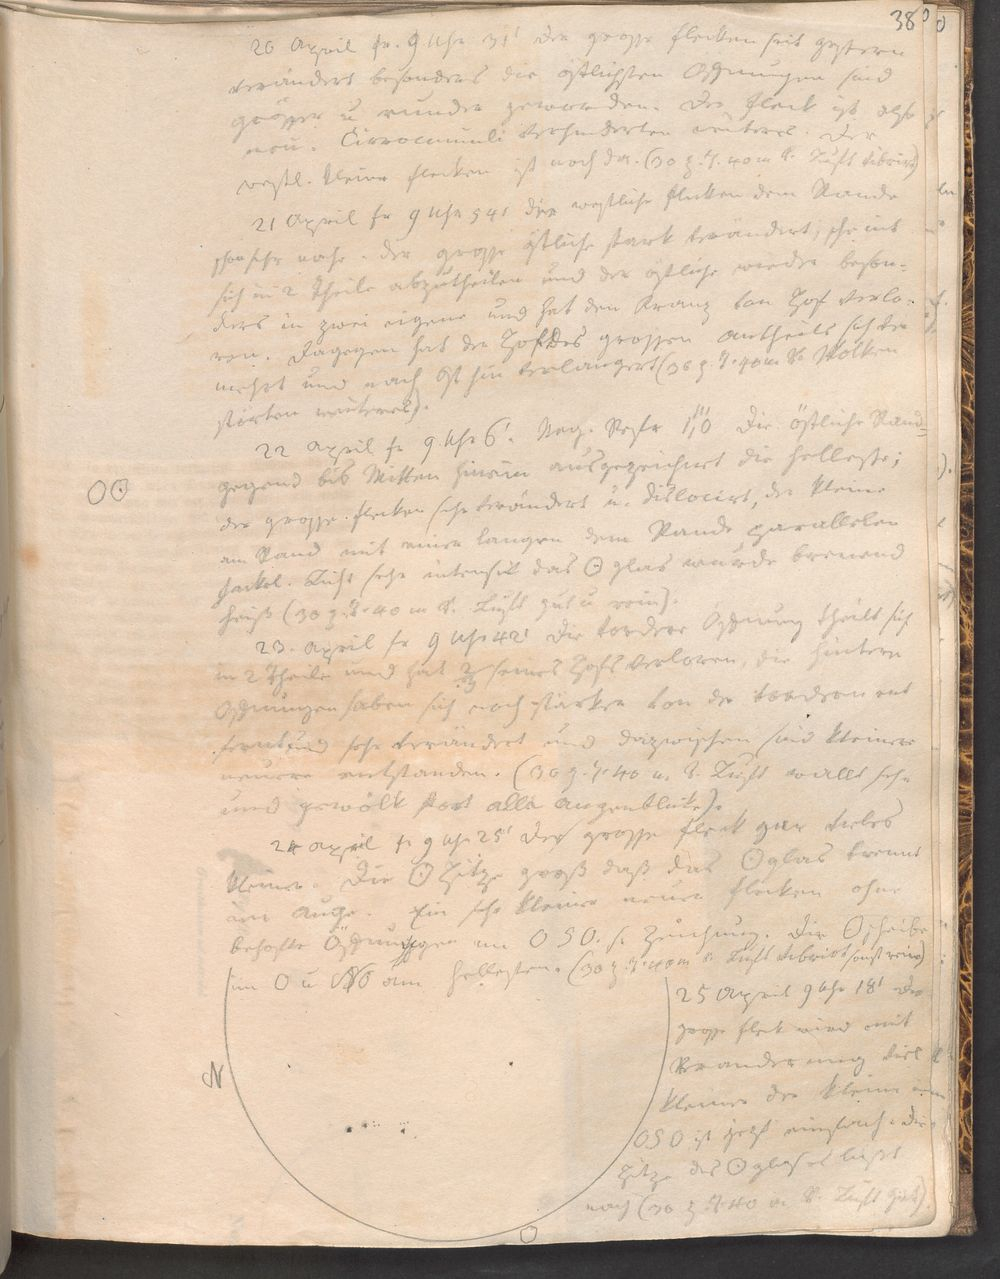 38
20 April fr. 9 Uhr 31' der grosse Flecken seit gestern
verändert besonders die östlichsten Öffnungen sind
grösser u runder geworden. Der Fleck ist also
neu. Cirrocumuli verhinderten weiteres. Der
westl. kleine Flecken ist noch da. (30 z. 7. 40 m V. Luft vibrirt)
21 April fr 9 Uhr 54' der westliche Flecken dem Rande
schon sehr nahe. der grosse östliche stark verändert, scheint
sich in 2 Theile abzutheilen und der östliche wieder beson-
ders in zwei eigene und hat den Kranz von Hof verlo-
ren. Dagegen hat der Hof des grossen Antheils sich ver
mehrt und nach Ost hin verlängert (30 z. 7. 40 m V. Wolken
störten weiteres).
22 April fr 9 Uhr 6'. Die östliche Rand-
gegend bis Mitten hinein ausgezeichnet die helleste;
der grosse Flecken sehr verändert u. dislocirt, der kleine
am Rand mit einer langen dem Rande parallelen
Fackel. Licht sehr intensiv das ⊙ glas wurde brennend
heiß (30 z. 7. 40 m V. Luft gut u rein).
OO
23. April fr 9 Uhr 42' Die vordere Öffnung theilt sich
in 2 Theile und hat 2/3 seines Hofs verloren, die hintern
Öffnungen haben sich noch stärker von der vordern ent
fernt und sehr verändert und dazwischen sind kleinere
neuere entstanden. (30 z. 7. 40 m V. Luft wallt sehr
und gewölk stört alle Augenblicke).
24 April fr 9 Uhr 25' Der grosse Fleck gar vieles
kleiner. Die ⊙ Hitze groß daß das ⊙ glas brennt
am Auge. Ein sehr kleiner neuer Flecken ohne
behofte Öffnungen in OSO. s. Zeichnung. Die ⊙ scheibe
im O u NO am hellesten. (30 z. 7. 40 m V. Luft vibrirt sonst rein)
25 April 9 Uhr 18' Der
grosse Fleck wird mit
Veränderung viel
kleiner der kleine im
OSO ist jetzt einfach. Die
Hitze des ⊙ glases läßt
nach (30 z. 7. 40 m V. Luft gut).
N
O